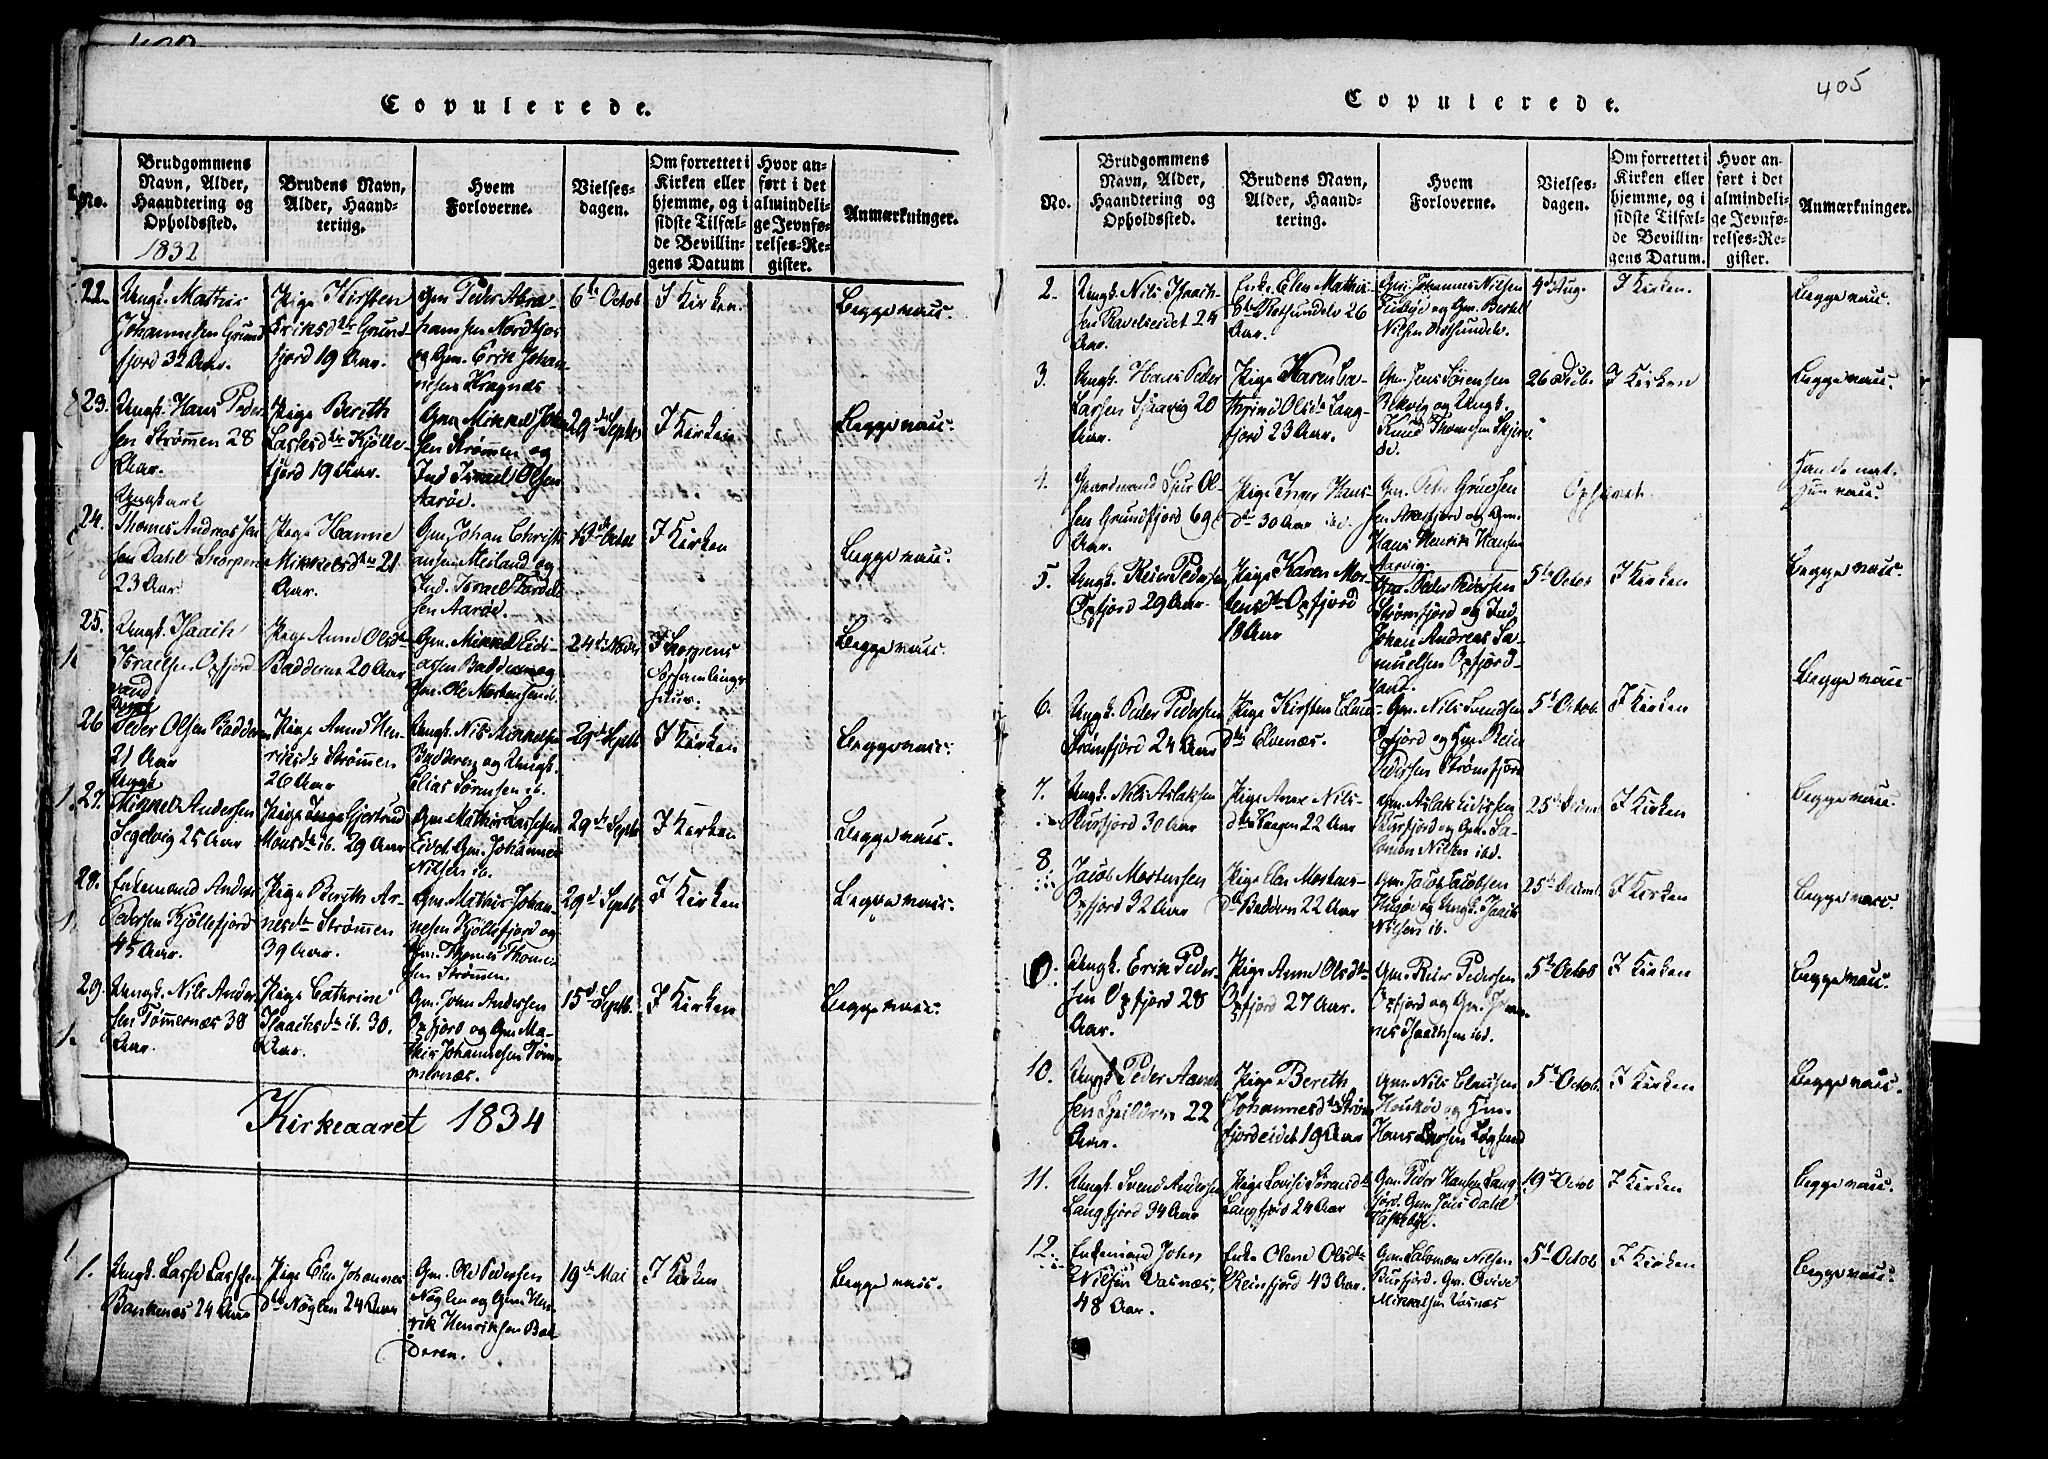 Copulerede.
No.
Brudgommens
Navn, Alder,
Haandtering og
Opholdssted.
1832
Brudens Navn,
Alder, Haand-
tering.
Hvem
Forloverne.
Vielses-
dagen.
Om forrettet i
Kirken eller
hjemme, og i
sidste Tilfæl-
de Bevillin-
gens Datum
Hvor an-
ført i det
almindeli-
ge Jevnfø-
relses-Re-
gister.
Anmærkninger.
22.
Ungk. Mathis
Johannesen Grund
fjord 32 Aar.
Pige Kirsten
Eriksdtr Grund
fjord 19 Aar.
Gm Peder Abra
hamsen Nordkjos
og Gm. Erik Johan
nesen Kragnæs
6te Octob
I Kirken.
Begge vacc.
23.
Ungk. Hans Peder
sen Strømmen 28
Aar.
Pige Bereth
Lassesdtr Kjølle-
fjord 19 Aar.
Gm Mikkel Johan
sen Strømmen og
Ind Israel Olsen
Aarøe.
29de Septb
I Kirken
Begge vacc.
24.
Ungkarl
Thomas Andreas Jen
sen Dahl Skorpen
23 Aar
Pige Hanne
Mikkelsdtr 21
Aar.
Gm Johan Christi
ansen Meiland og
Ind. Israel
sen Aarøe.
13de Octob
I Kirken
Begge vacc.
25.
Ungk. Isaach
Israelsen Oxfjord
vand
Pige Anne Olsdtr
Badderen 20 Aar
Gm. Mikkel Eidi-
assen Badderen og
Gm. Ole Mortensen ib.
24de Novbr
I Skorpens
Forsamlings
huus.
Begge vacc.
26
Ungk
Peder Olsen Badderen
21 Aar
Pige Anne Hen-
riksdtr Strømmen
26 Aar
Ungk. Nils Mikkelsen
Badderen og Ungk.
Elias Sørensen ib.
29de Septb
I Kirken
Begge vacc.
27.
Ungk
Mikkel Andersen
Segelvig 25 Aar
Pige Inge Gjertrud
Monsdtr ib. 29 Aar
Gm Mathis Lassesen
Eidet Gm. Johannes
Nilsen ib.
29de Septb
I Kirken
Begge vacc.
28.
Enkemand Anders
Pedersen Kjøllefjord
45 Aar.
Pige Bereth Ar-
nesdtr Strømmen
39 Aar.
Gm Mathis Johan-
nesen Kjøllefjord og
Gm. Thomes Thome-
sen Strømmen.
29d Septb
I Kirken
Begge vacc.
29.
Ungk. Nils Ander
sen Tømmernæs 38
Aar.
Pige Cathrine
Isaachsdtr ib. 30.
Aar.
Gm. John Andersen
Oxfjord og Gm Ma-
this Johannesen Tøm-
mernæs.
15d Septb.
I Kirken
Begge vacc.
Kirkeaaret 1834
1.
Ungk. Lasse Lassesen
Bankenes 24 Aar
Pige Elen Johannes
Dtr Nøglen 24 Aar
Gm. Ole Pedersen
Nøglen og Gm Hen
rik Henriksen Bad
deren.
19de Mai
I Kirken
Begge vacc.
405
Copulerede.
No.
Brudgommens
Navn, Alder,
Haandtering og
Opholdssted.
Brudens Navn,
Alder, Haand-
tering.
Hvem
Forloverne.
Vielses-
dagen.
Om forrettet i
Kirken eller
hjemme, og i
sidste Tilfæl-
de Bevillin-
gens Datum.
Hvor an-
ført i det
almindeli-
ge Jevnfø-
relses-Re-
gister.
Anmærkninger.
2.
Ungk. Nils Isaach-
sen Ravelseidet 24
Aar.
Enke Elen Mathis
dtr Rotsundelv 26
Aar.
Gm. Johannes Nilsen
og Gm. Bertel
Nilsen Rotsundelv.
4d Aug.
I Kirken.
Begge vacc.
3.
Ungk. Hans Peder
Larsen Spaavig 20
Aar.
Pige Karen Ca-
thrine Olsdtr Lang-
fjord 23 Aar.
Gm. Jens Sørensen
Rekvig og Ungk.
Knud Thomesen Skjer
26 Dcb.
I Kirken
Begge vacc.
4.
Gaardmand Siur Ol-
sen Grundfjord 69
Aar.
Pige Inger Hans-
dtr 30 Aar ibd.
Gm.
sen og Gm.
Hans Henrik Hansen
Aarvig.
Ophævet.
Han do nat.
Hun vacc.
5.
Ungk. Reier Peders
Oxfjord 29 Aar.
Pige Karen Mor-
tensdtr Oxfjord
18 Aar
Gm. Peder Pedersen
Strømfjord og Ind
Johan Andreas Sa-
muelsen Oxfjord-
vand.
5te Octob
I Kirken
Begge vacc.
6.
Ungk. Peder Pedersen
Strømfjord 24 Aar
Pige Kirsten
Dtr Elvenæs.
Gm. Nils Svendsen
Oxfjord og Gm. Reier
Pedersen Strømfjord
5t Octob.
I Kirken
Begge vacc
7.
Ungk. Nils Aslaksen
Burfjord 30 Aar
Pige Anne Nils-
dtr 22 Aar
Gm. Aslak
Burfjord og Gm. Sa-
lomon Nilsen ibd.
25de Decmb
I Kirken
Begge vacc.
8.
Jacob Mortensen
Oxfjord 32 Aar
Pige Elen Mortens-
Dtr Baddern 22 Aar
Gm. Jacob Jacobsen
og Ungk. Isaach
Nilsen ib.
25de Decmb.
I Kirken
Begge vacc.
9.
Ungk. Erik Peder
sen Oxfjord 28
Aar.
Pige Anne Olsdtr
Oxfjord 27 Aar.
Gm. Reier Pedersen
Oxfjord og Gm.
nes Isaachsen ibd.
5te Octob
I Kirken
Begge vacc.
10.
Ungk Peder
sen Spildern 22
Aar.
Pige Bereth
Johannesdtr Strøm
fjordeidet 19 Aar
Gm. Nils Clausen
Haukøe og Gm.
Hans Larsen Løgsund
5t Octob.
I Kirken
Begge vacc.
11.
Ungk. Svend Andersen
Langfjord 34 Aar
Pige Lovise Sørensdtr
Langfjord 24 Aar
Gm. Peder Hansen Lang
fjord. Gm Jens Dahl
19de Octob
I Kirken
Begge vacc.
12.
Enkemand John
Nilsen Vasnæs,
48 Aar.
Enke Olene Olsdtr
Reinfjord 43 Aar.
Gm. Salomon Nilsen
Burfjord. Gm. Qvive
Mikkelsen Vasnæs
5t Octob
I Kirken
Begge vacc.